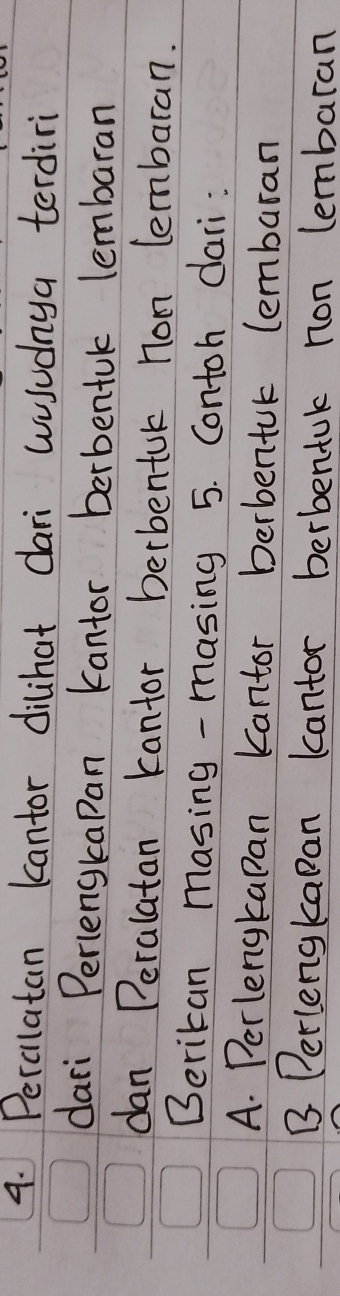 4. Peralatan kantor dilihat dari wujudnya terdiri
dari Perlengkapan kantor berbentuk lembaran
dan Peralatan kantor berbentuk non lembaran.
Berikan masing - masing 5. Contoh dari :
A. Perlengkapan kantor berbentuk lembaran
B. Perlengkapan kantor berbentuk non lembaran